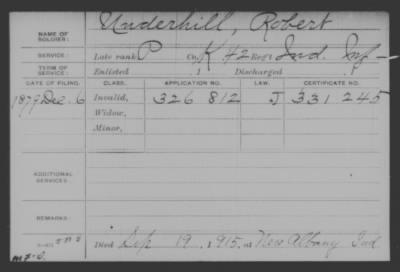 NAME OF SOLDIER: Underhill, Robert
SERVICE: Late rank P Co. K 42 Reg't Ind. Inf
TERM OF SERVICE: Enlisted 1 Discharged 1
DATE OF FILING. CLASS. APPLICATION NO. LAW. CERTIFICATE NO.
1879 Dec. 6 Invalid, 326 812 J 331 245
Widow,
Minor,
ADDITIONAL SERVICES:
REMARKS:
Died Sep 19, 1915, at New Albany Ind